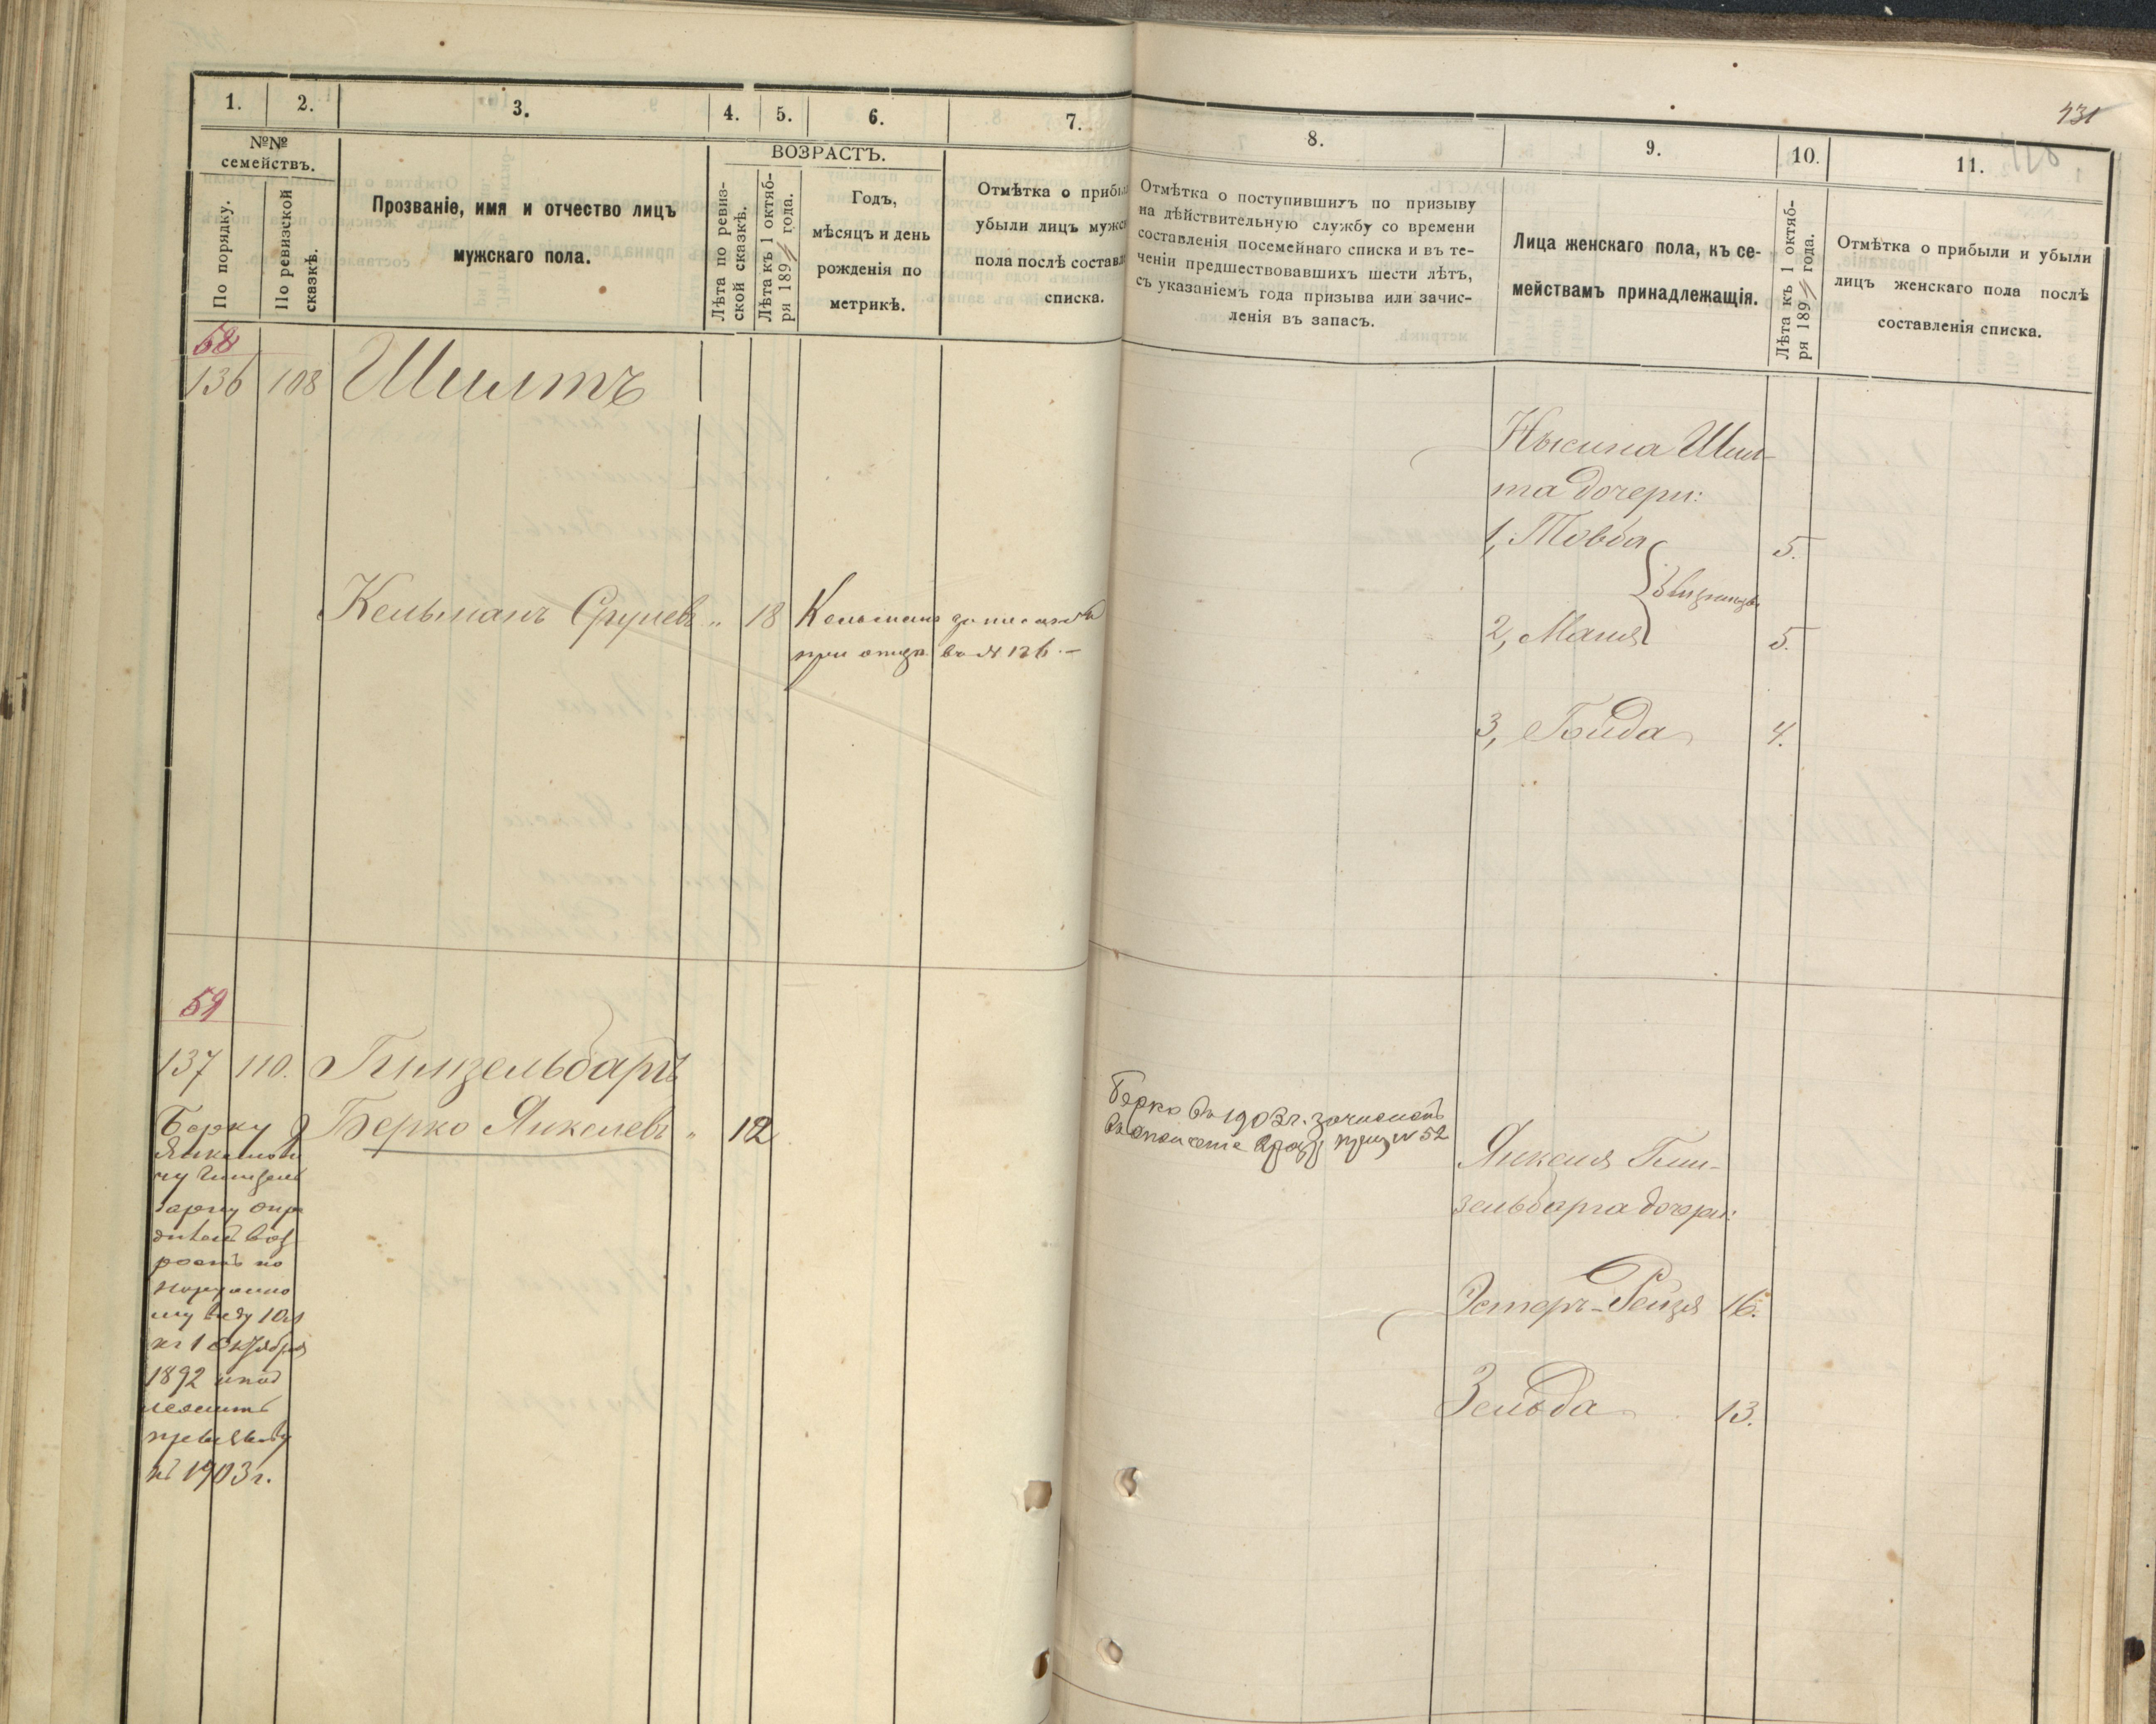 1.
2.
3.
4.
5.
6.
7.
№№
семействъ.
По порядку.
По ревизской
сказкѣ.
Прозваніе, имя и отчество лицъ
мужскаго пола.
ВОЗРАСТЪ.
Лѣта по ревиз-
ской сказкѣ.
Лѣта къ 1 октяб-
ря 189 года.
Годъ,
мѣсяцъ и день
рожденія по
метрикѣ.
Отмѣтка о прибы
убыли лицъ мужс
пола послѣ составл
списка.
58
136 108 Шилтъ
Кельманъ Срулевъ " 18 Кельманъ записанъ
при отцѣ въ № 126. –
59
137 110. Гинзельбаргъ
Берко Янкелевъ " 12
Берку
Янкелеви
чу Гинзель
баргу опре
дѣленъ воз
растъ по
наружно
му виду 10 л
къ 1 октября
1892 и под
лежитъ
призыву
въ 1903 г.
431
8.
9.
10.
11.
Отмѣтка о поступившихъ по призыву
на дѣйствительную службу со времени
составленія посемейнаго списка и въ те-
ченіи предшествовавшихъ шести лѣтъ,
съ указаніемъ года призыва или зачис-
ленія въ запасъ.
Лица женскаго пола, къ се-
мействамъ принадлежащія.
Лѣта къ 1 октяб-
ря 189 года.
Отмѣтка о прибыли и убыли
лицъ женскаго пола послѣ
составленія списка.
Нысина Шил-
та дочери:
1, Товба 5.
2, Маня 5.
3, Гойда 4.
Берко въ 1903 г. зачисленъ
въ ополченіе 2 разр № 52
Янкеля Гин-
зельбарга дочери:
Эстеръ-Рейзя 16.
Зельда 13.